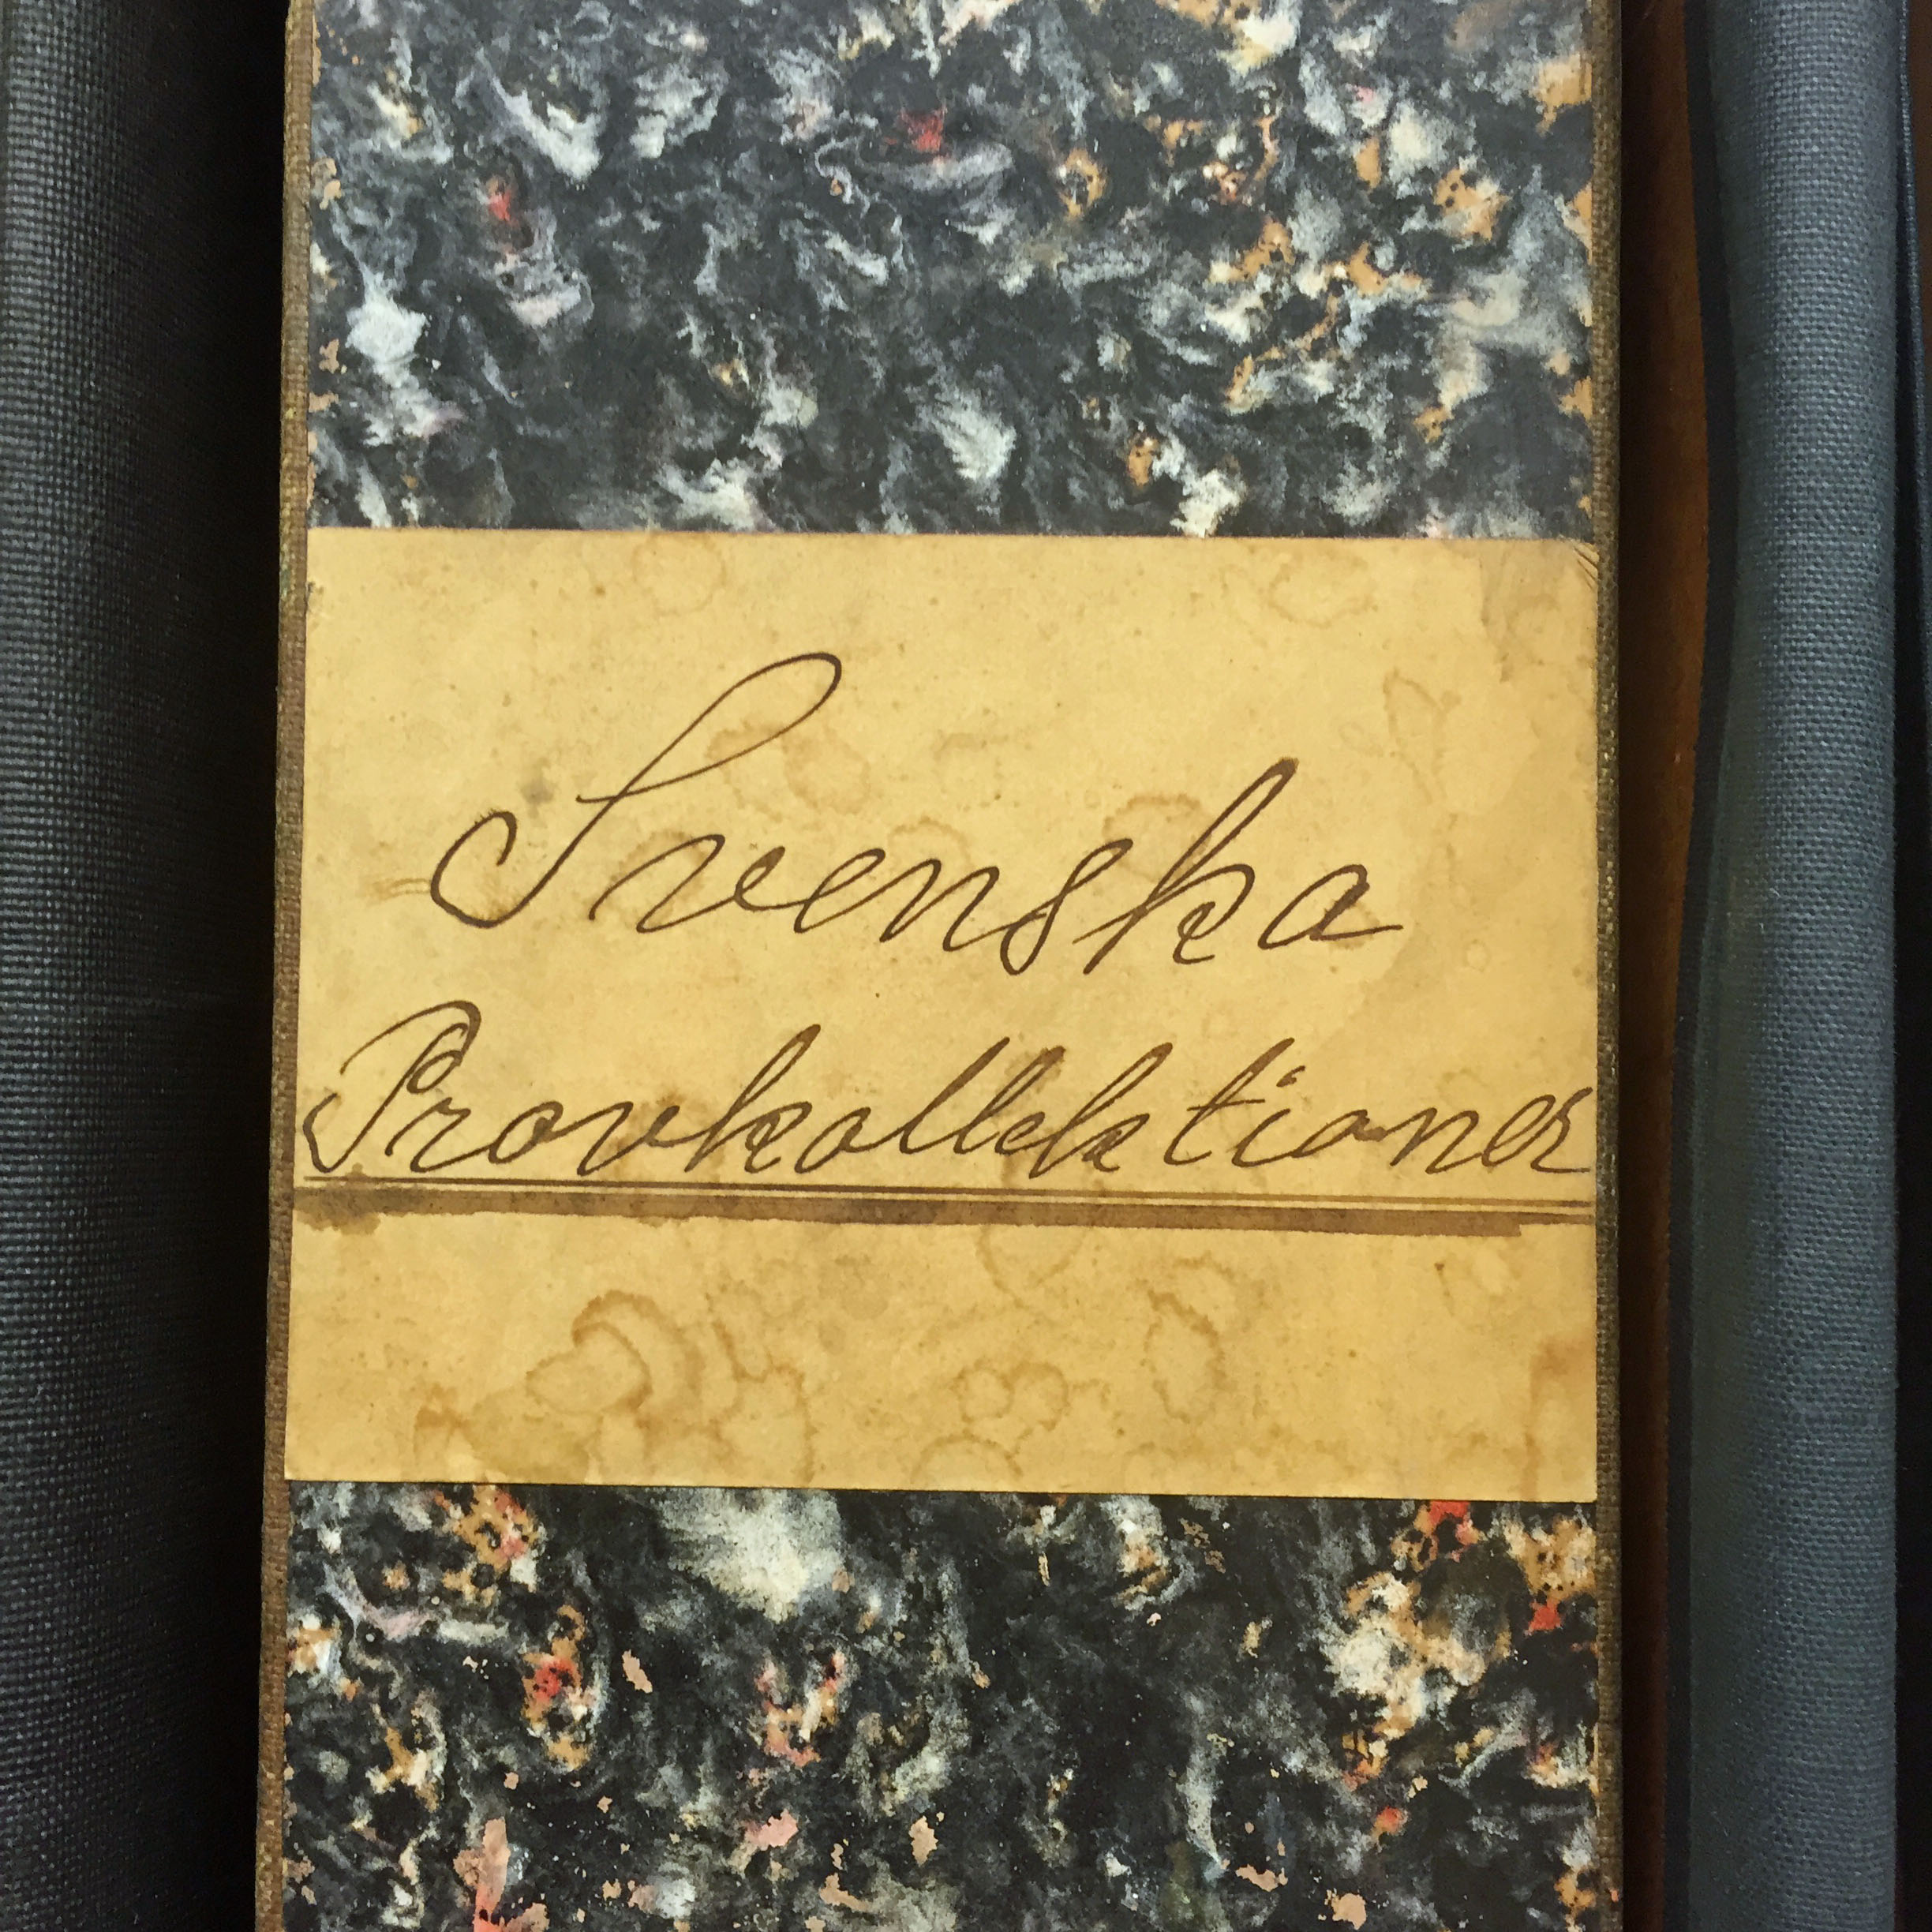 Svenska
Provkollektioner